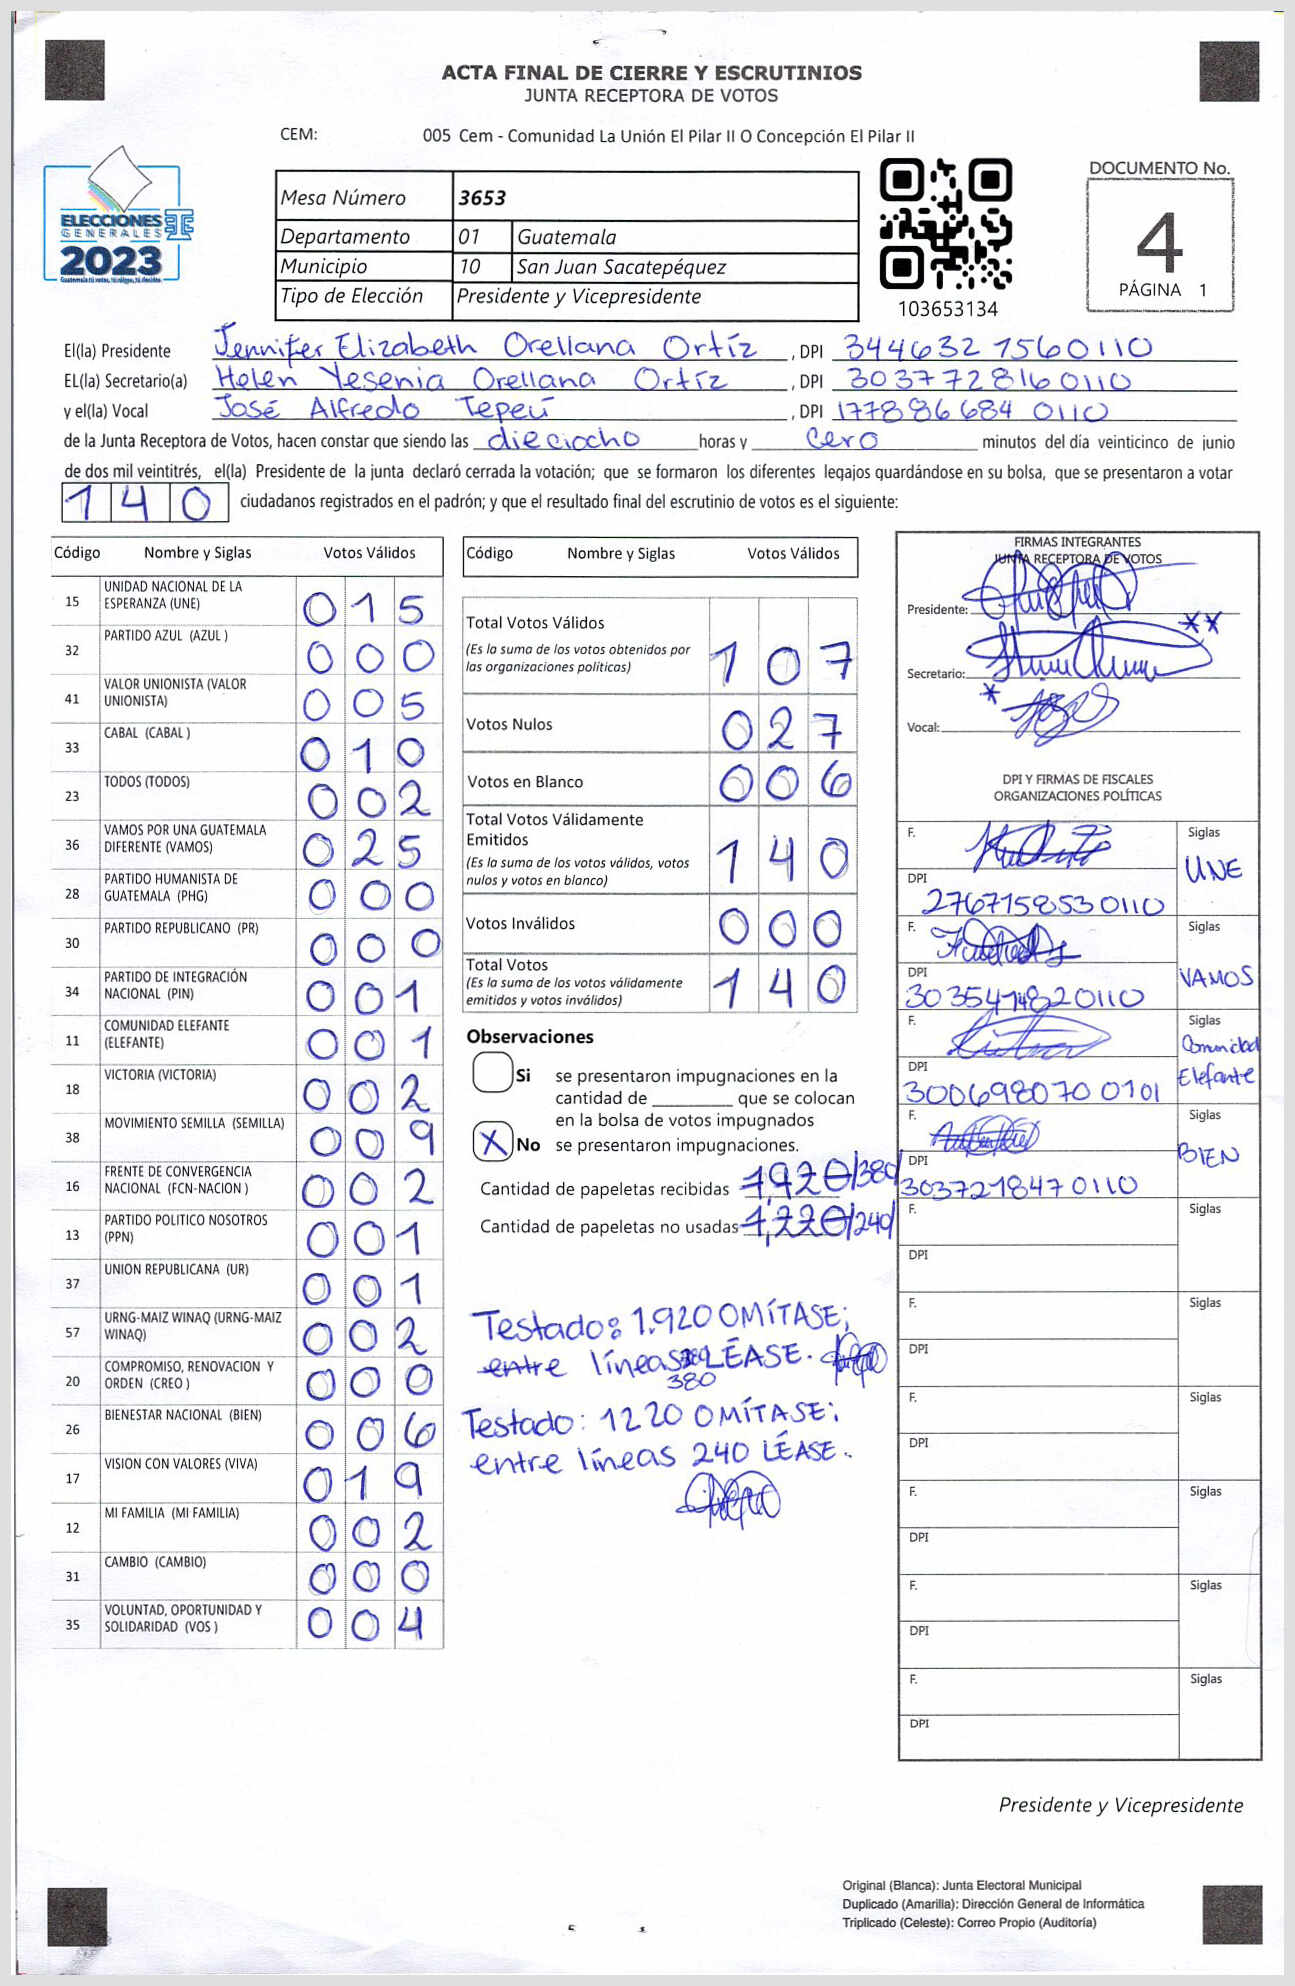 ACTA FINAL DE CIERRE Y ESCRUTINIOS
JUNTA RECEPTORA DE VOTOS
CEM: 005 Cem - Comunidad La Unión El Pilar II O Concepción El Pilar II
ELECCIONES
GENERALES
2023
Mesa Número 3653
Departamento 01 Guatemala
Municipio 10 San Juan Sacatepéquez
Tipo de Elección Presidente y Vicepresidente
103653134
DOCUMENTO No.
4
PÁGINA 1
El(la) Presidente Jennifer Elizabeth Orellana Ortíz, DPI 3446327560110
EL(la) Secretario(a) Helen Yesenia Orellana Ortíz, DPI 3037728160110
y el(la) Vocal José Alfredo Tepeú, DPI 177886684 0110
de la Junta Receptora de Votos, hacen constar que siendo las dieciocho horas y cero minutos del día veinticinco de junio
de dos mil veintitrés, el(la) Presidente de la junta declaró cerrada la votación; que se formaron los diferentes legajos guardándose en su bolsa, que se presentaron a votar
140 ciudadanos registrados en el padrón; y que el resultado final del escrutinio de votos es el siguiente:
Código Nombre y Siglas Votos Válidos
15 UNIDAD NACIONAL DE LA ESPERANZA (UNE) 015
32 PARTIDO AZUL (AZUL ) 000
41 VALOR UNIONISTA (VALOR UNIONISTA) 005
33 CABAL (CABAL ) 010
23 TODOS (TODOS) 002
36 VAMOS POR UNA GUATEMALA DIFERENTE (VAMOS) 025
28 PARTIDO HUMANISTA DE GUATEMALA (PHG) 000
30 PARTIDO REPUBLICANO (PR) 000
34 PARTIDO DE INTEGRACIÓN NACIONAL (PIN) 001
11 COMUNIDAD ELEFANTE (ELEFANTE) 001
18 VICTORIA (VICTORIA) 002
38 MOVIMIENTO SEMILLA (SEMILLA) 009
16 FRENTE DE CONVERGENCIA NACIONAL (FCN-NACION ) 002
13 PARTIDO POLITICO NOSOTROS (PPN) 001
37 UNION REPUBLICANA (UR) 001
57 URNG-MAIZ WINAQ (URNG-MAIZ WINAQ) 002
20 COMPROMISO, RENOVACION Y ORDEN (CREO ) 000
26 BIENESTAR NACIONAL (BIEN) 006
17 VISION CON VALORES (VIVA) 019
12 MI FAMILIA (MI FAMILIA) 002
31 CAMBIO (CAMBIO) 000
35 VOLUNTAD, OPORTUNIDAD Y SOLIDARIDAD (VOS ) 004
Código Nombre y Siglas Votos Válidos
Total Votos Válidos 107
(Es la suma de los votos obtenidos por
las organizaciones políticas)
Votos Nulos 027
Votos en Blanco 006
Total Votos Válidamente
Emitidos 140
(Es la suma de los votos válidos, votos
nulos y votos en blanco)
Votos Inválidos 000
Total Votos 140
(Es la suma de los votos válidamente
emitidos y votos inválidos)
Observaciones
Si se presentaron impugnaciones en la
cantidad de ________ que se colocan
en la bolsa de votos impugnados
X No se presentaron impugnaciones.
Cantidad de papeletas recibidas 1,920/380/
Cantidad de papeletas no usadas 1,220/240/
Testado: 1.920 OMÍTASE;
entre líneas 380 LÉASE.
380
Testado: 1220 OMÍTASE;
entre líneas 240 LÉASE.
FIRMAS INTEGRANTES
JUNTA RECEPTORA DE VOTOS
Presidente:
Secretario:
Vocal:
DPI Y FIRMAS DE FISCALES
ORGANIZACIONES POLÍTICAS
F. Siglas UNE
DPI 2767158530110
F. Siglas VAMOS
DPI 3035414820110
F. Siglas Comunidad Elefante
DPI 300698070 0101
F. Siglas BIEN
DPI 3037218470110
F. Siglas
DPI
F. Siglas
DPI
F. Siglas
DPI
F. Siglas
DPI
F. Siglas
DPI
F. Siglas
DPI
Presidente y Vicepresidente
Original (Blanca): Junta Electoral Municipal
Duplicado (Amarilla): Dirección General de Informática
Triplicado (Celeste): Correo Propio (Auditoría)